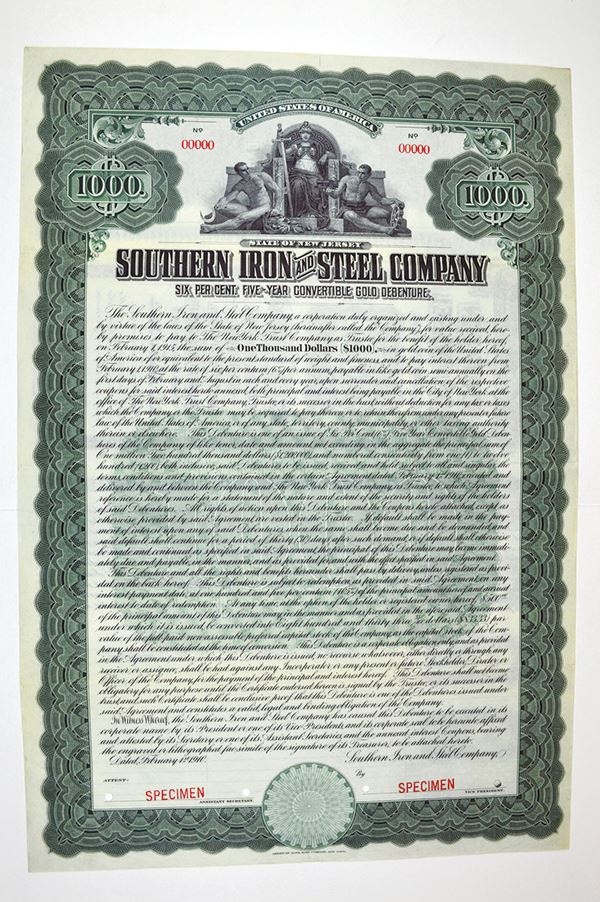 UNITED STATES OF AMERICA
No
00000
No
00000
1000.
1000.
STATE OF NEW JERSEY
SOUTHERN IRON AND STEEL COMPANY
SIX PER CENT. FIVE-YEAR CONVERTIBLE GOLD DEBENTURE.
The Southern Iron and Steel Company, a corporation duly organized and existing under and
by virtue of the laws of the State of New Jersey (hereinafter called the Company), for value received, here-
by promises to pay to The New York Trust Company, as Trustee for the benefit of the holder hereof,
on February 1, 1915, the sum of One Thousand Dollars ($1000), in gold coin of the United States
of America of or equivalent to the present standard of weight and fineness, and to pay interest thereon from
February 1, 1910, at the rate of six per centum (6%) per annum, payable in like gold coin, semi-annually on the
first days of February and August in each and every year, upon surrender and cancellation of the respective
coupons for said interest hereto annexed, both principal and interest being payable in the City of New York at the
office of The New York Trust Company, Trustee, or its successor in the trust, without deduction for any tax or taxes
which the Company or the Trustee may be required to pay thereon or to retain therefrom under any present or future
law of the United States of America or of any state, territory, county, municipality, or other taxing authority
therein or elsewhere. This Debenture is one of an issue of Six Per Cent. Five-Year Convertible Gold Deben-
tures of the Company of like tenor, date and amount, not exceeding in the aggregate the principal sum of
One million two hundred thousand dollars ($1,200,000), and numbered consecutively from one (1) to twelve
hundred (1200), both inclusive, said Debentures to be issued, received and held subject to all and singular the
terms, conditions and provisions contained in the certain Agreement dated February 1, 1910, executed and
delivered by and between the Company and The New York Trust Company, as Trustee, to which Agreement
reference is hereby made for a statement of the nature and extent of the security and rights of the holders
of said Debentures. All rights of action upon this Debenture and the Coupons hereto attached, except as
otherwise provided by said Agreement are vested in the Trustee. If default shall be made in the pay-
ment of interest upon any of said Debentures when the same shall become due and be demanded, and
said default shall continue for a period of thirty (30) days after such demand, or if default shall otherwise
be made and continued as specified in said Agreement, the principal of this Debenture may become immedi-
ately due and payable, in the manner, and as provided for, and with the effect specified in said Agreement.
This Debenture and all the rights and benefits hereunder shall pass by delivery, unless registered as provi-
ded on the back hereof. This Debenture is subject to redemption, as provided in said Agreement, on any
interest payment date, at one hundred and five per centum (105%) of the principal amount hereof, and accrued
interest to date of redemption. At any time, at the option of the holder or registered owner hereof,
of the principal amount of this Debenture may in the manner and as provided in the aforesaid Agreement
under which it is issued, be converted into Eight hundred and thirty three dollars par
value of the full-paid non-assessable preferred capital stock of the Company, as the capital stock of the Com-
pany shall be constituted at the time of conversion. This Debenture is a corporate obligation only, and as provided
in the Agreement under which this Debenture is issued, no recourse whatsoever, either directly or through any
receiver or assignee, shall be had against any Incorporator or any present or future Stockholder, Director or
Officer of the Company, for the payment of the principal and interest hereof. This Debenture shall not become
obligatory for any purpose until the Certificate endorsed hereon is signed by the Trustee, or its successor in the
trust, and such Certificate shall be conclusive proof that this Debenture is one of the Debentures issued under
said Agreement and constitutes a valid, legal and binding obligation of the Company.
In Witness Whereof, the Southern Iron and Steel Company has caused this Debenture to be executed in its
corporate name by its President or one of its Vice-Presidents and its corporate seal to be hereunto affixed
and attested by its Secretary or one of its Assistant Secretaries, and the annexed interest Coupons, bearing
the engraved or lithographed facsimile of the signature of its Treasurer, to be attached hereto.
Dated, February 1st 1910.
Southern Iron and Steel Company,
ATTEST:
By
SPECIMEN
SPECIMEN
ASSISTANT SECRETARY.
VICE PRESIDENT.